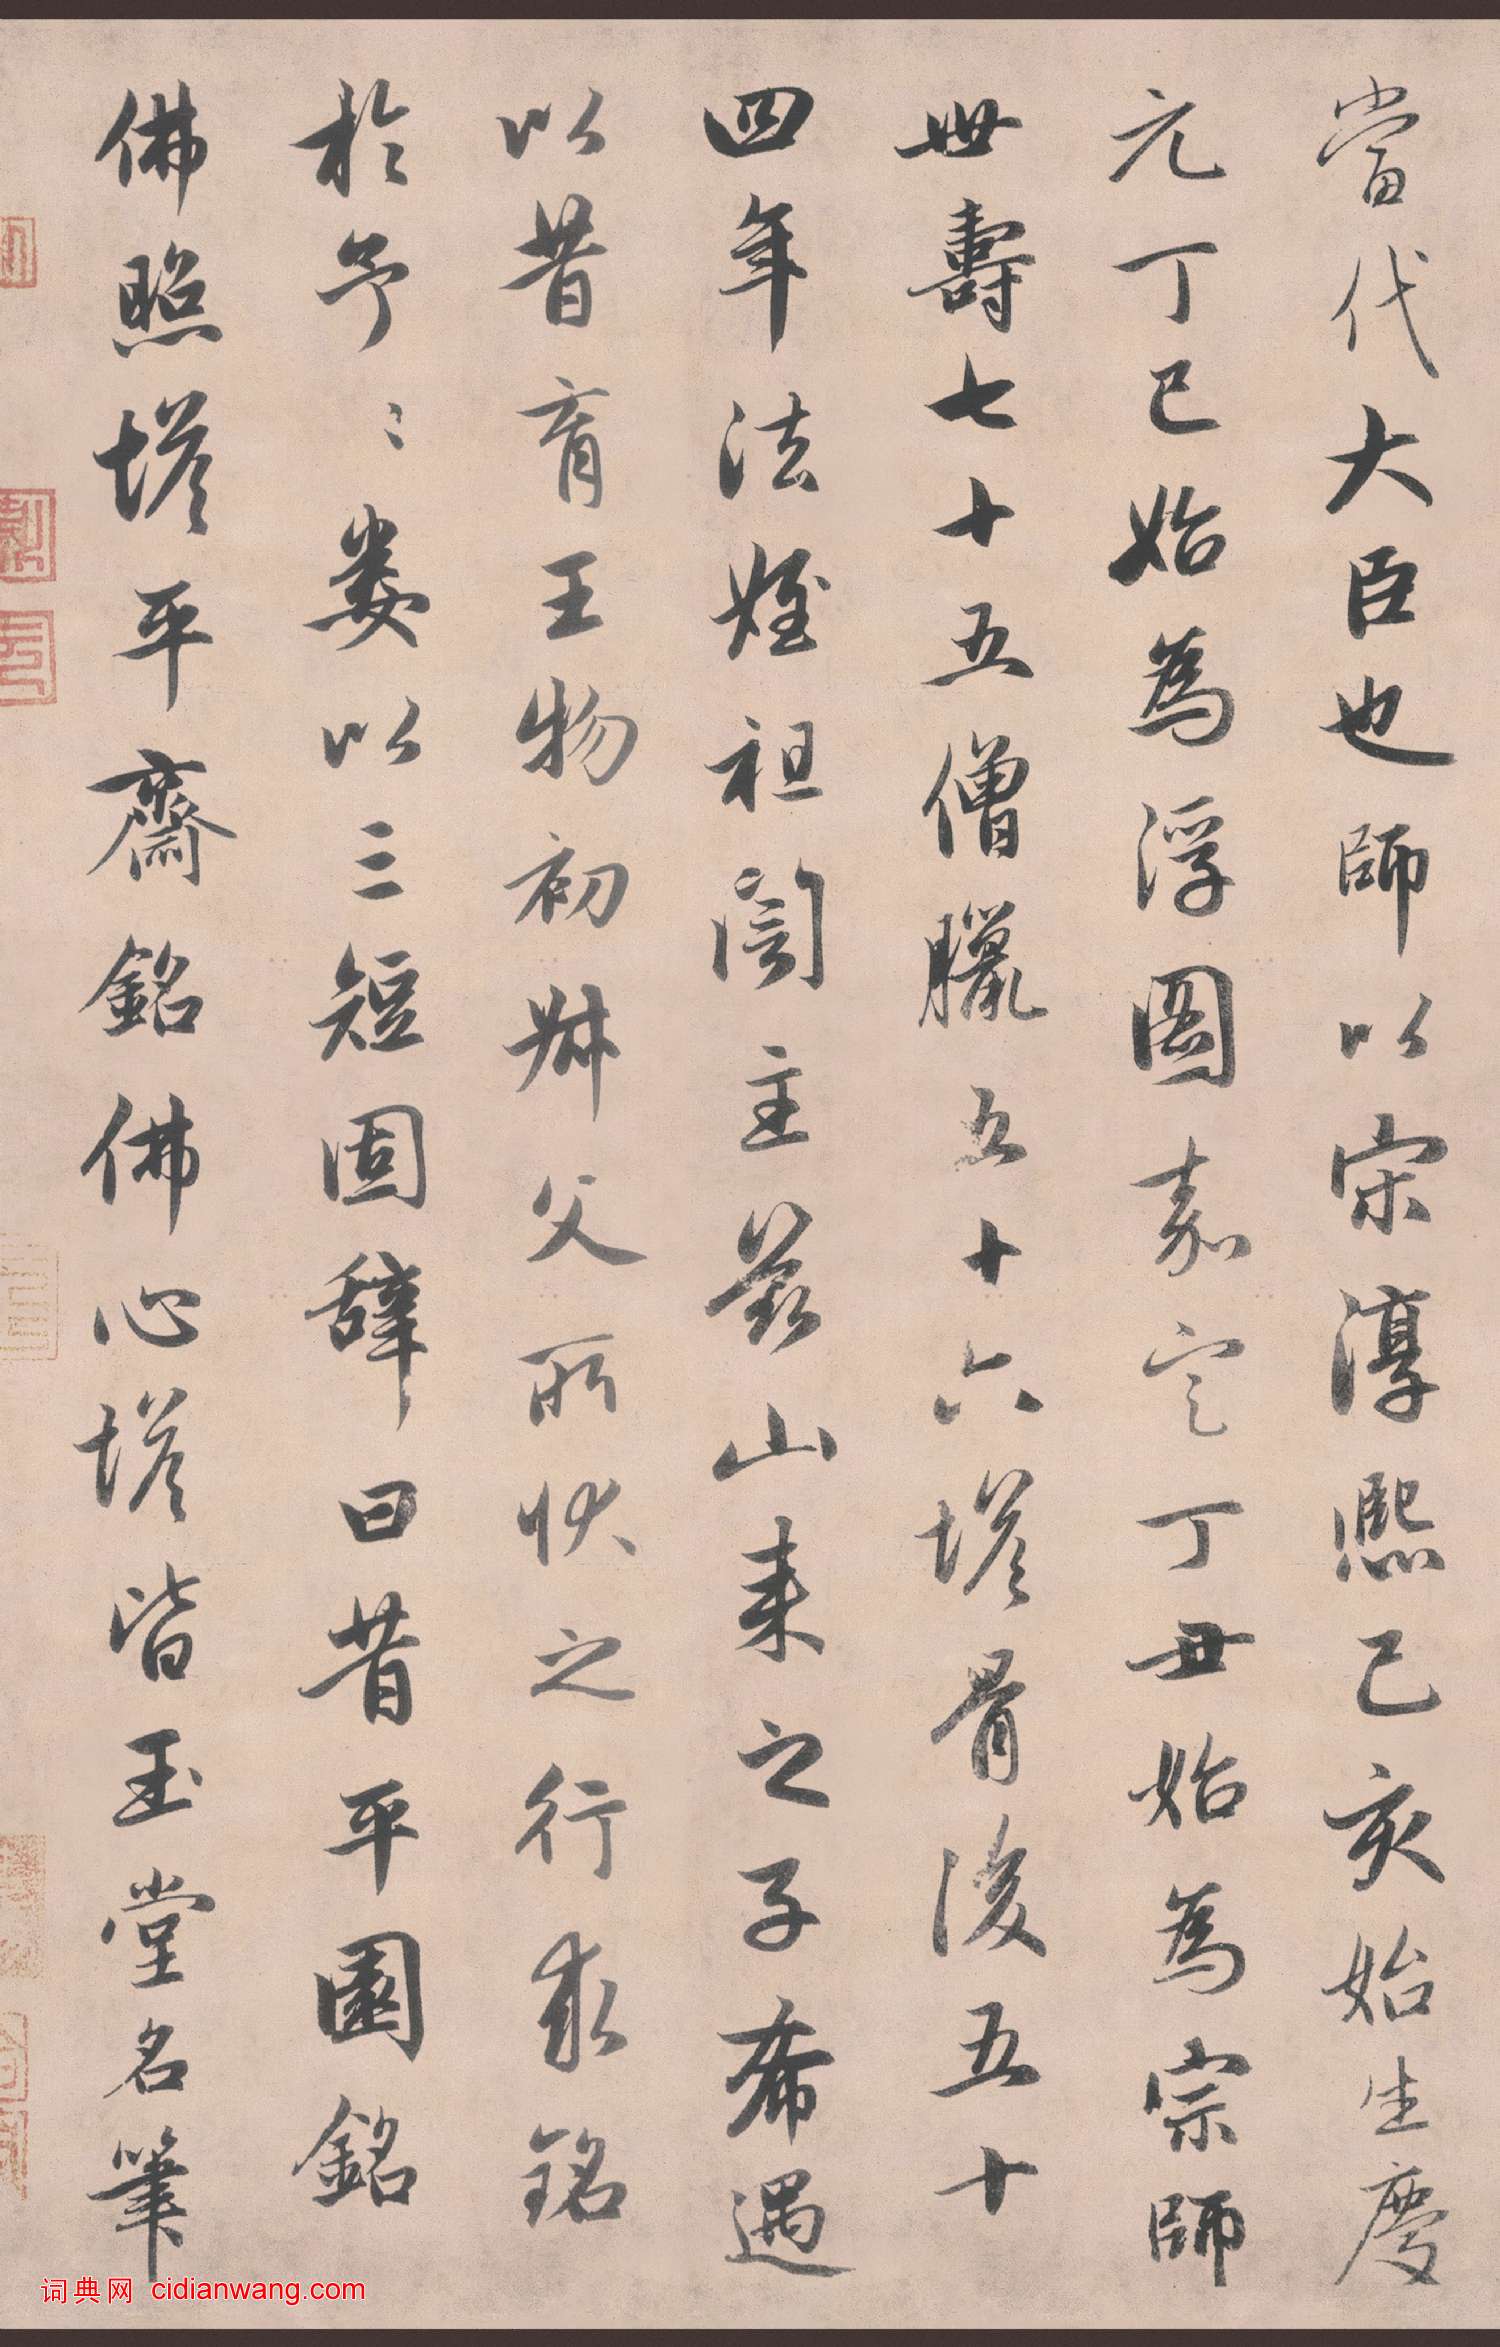 當代大臣也師以宋淳熙己亥始生慶
元丁巳始為浮圖嘉定丁丑始為宗師
世壽七十五僧臘五十六塔骨後五十
四年法姪祖訚主茲山來之子希遇
以昔育王物初叔父所狀之行求銘
於予〻娄以三短固辭曰昔平園銘
佛照塔平齋銘佛心塔皆玉堂名筆
词典网 cidianwang.com